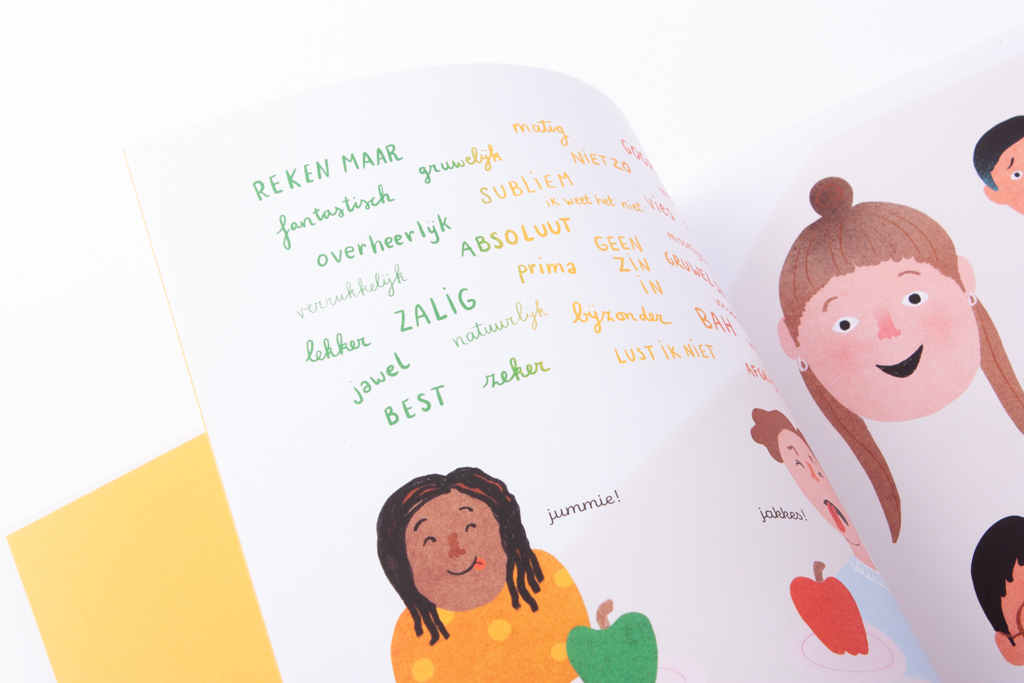 REKEN MAAR
fantastisch
overheerlijk
verrukkelijk
lekker
jawel
BEST
gruwelijk
SUBLIEM
ABSOLUUT
ZALIG
natuurlijk
zeker
matig
NIET ZO
ik weet het niet
GEEN
ZIN
iN
prima
bijzonder
LUST iK NIET
BAH
jummie!
jakkes!